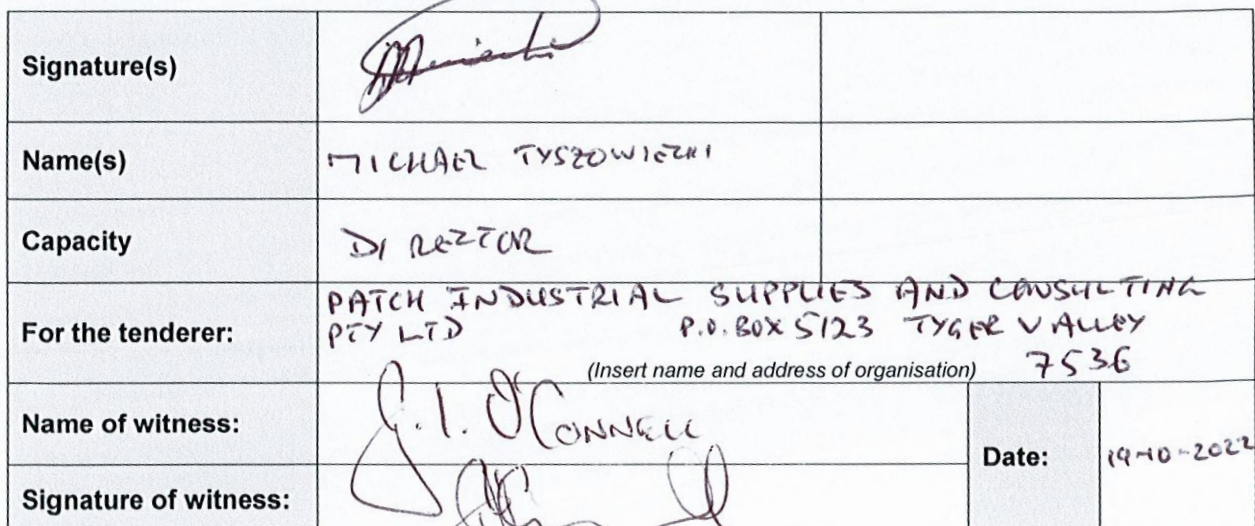 Signature(s)
Name(s) MICHAEL TYSZOWIECKI
Capacity DIRECTOR
For the tenderer: PATCH INDUSTRIAL SUPPLIES AND CONSULTING
PTY LTD P.O. BOX 5123 TYGER VALLEY
7536
(Insert name and address of organisation)
Name of witness: J.I. O'CONNELL
Date: 19-10-2022
Signature of witness: